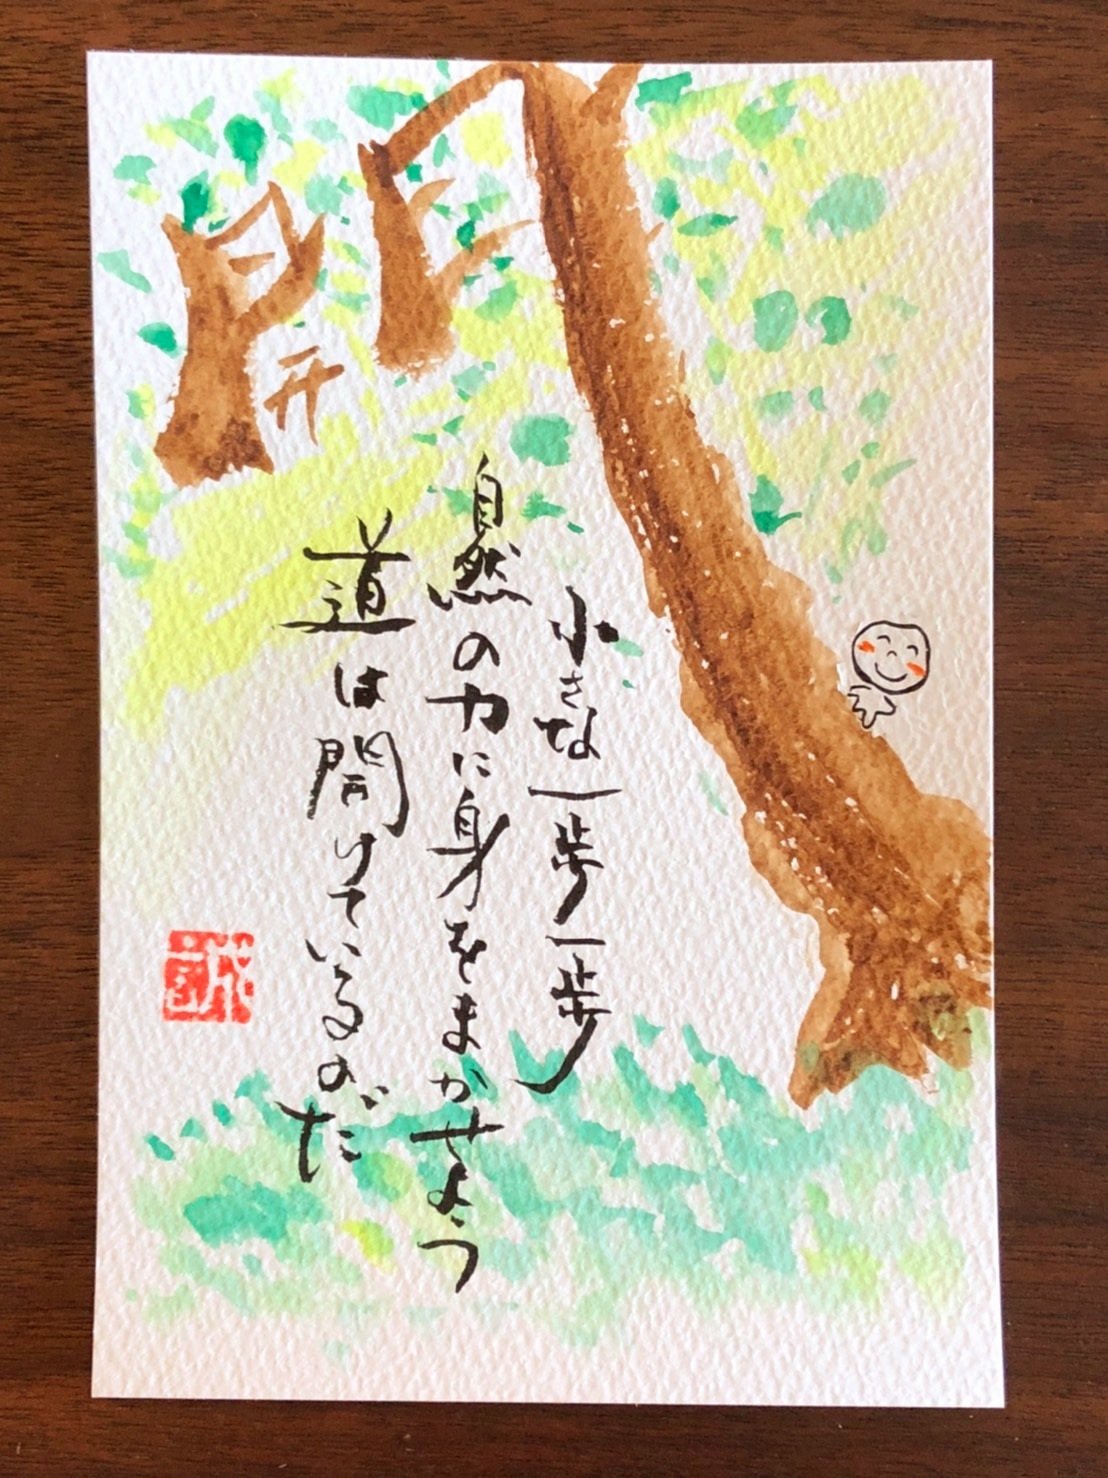 小さな一歩一歩
自然の力に身をまかせよう
道は開けているのだ